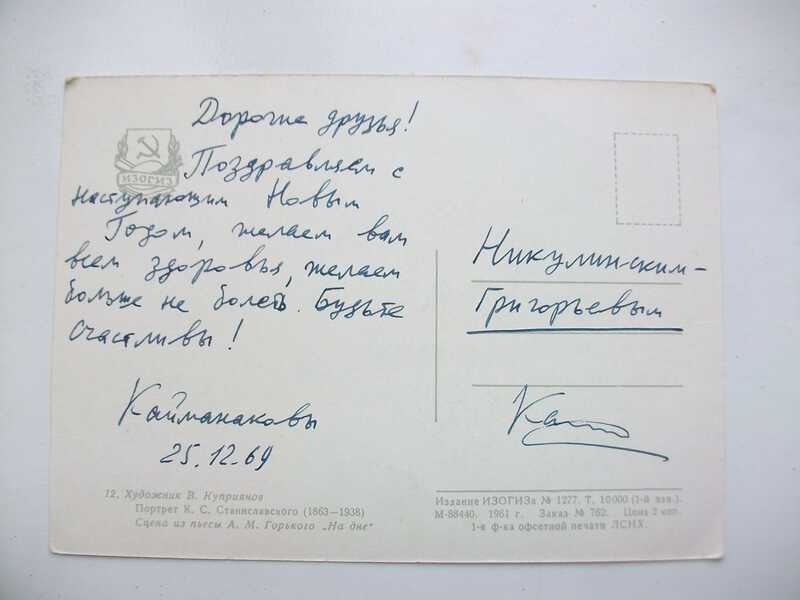 Дорогие друзья!
ИЗОГИЗ
Поздравляем с
наступающим Новым
Годом, желаем вам
всем здоровья, желаем
больше не болеть. Будьте
счастливы!
Кайманаковы
25.12.69
Никулинским-
Григорьевым
12. Художник В. Куприянов
Портрет К. С. Станиславского (1863—1938)
Сцена из пьесы А. М. Горького „На дне“
Издание ИЗОГИЗа № 1277. Т. 10 000 (1-й зав.).
М-88440. 1961 г. Заказ № 762. Цена 2 коп.
1-я ф-ка офсетной печати ЛСНХ.